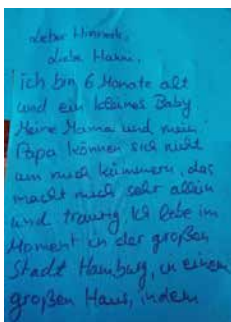 Lieber Hinnerk,
Liebe Hanni,
ich bin 6 Monate alt
und ein kleines Baby
Meine Mama und mein
Papa können sich nicht
um mich kümmern, das
macht mich sehr allein
und traurig Ich lebe im
Moment in der großen
Stadt Hamburg, in einem
großen Haus, indem